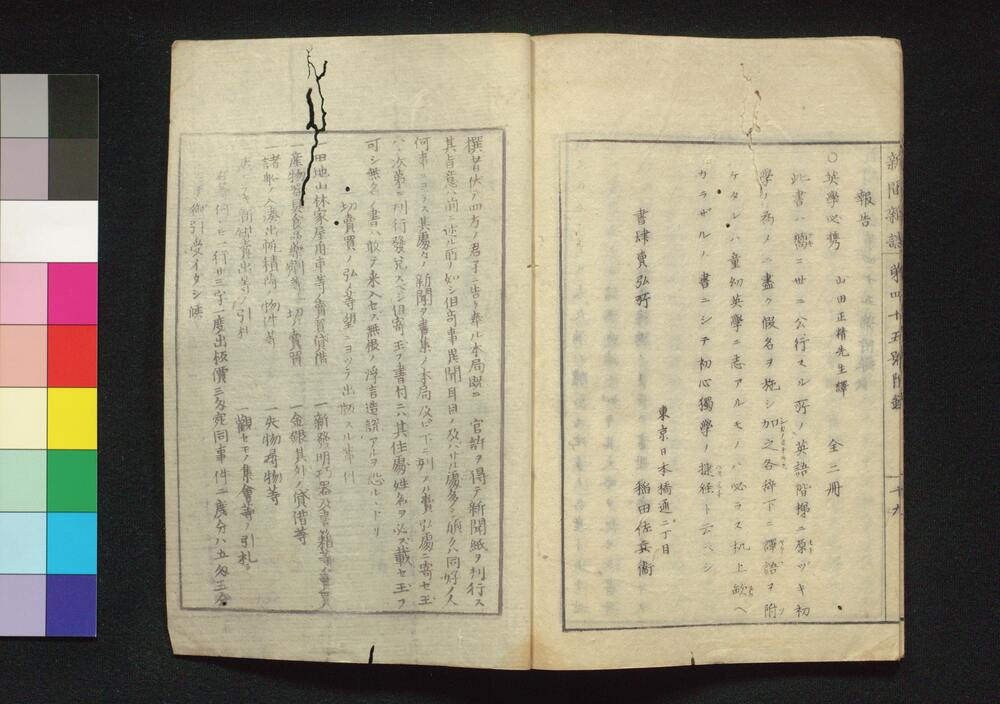 新聞雑誌 第四十五号附録 十九
報告
○英學必携 山田正精先生譯 全二冊
此書ハ嚮ニ世ニ公行スル所ノ英語階梯ニ原ヅキ初
學ノ為メニ盡ク假名ヲ施シ加之各辞下ニ譯語ヲ附
ケタレバ童幼英學ニ志アルモノハ必ラズ机上欠ベ
カラザルノ書ニシテ初心獨學ノ捷径ト云ベシ
東京日本橋通二丁目
書肆賣弘所 稲田佐兵衞
撰者伏テ四方ノ君子ニ告ケ奉ル本局既ニ 官許ヲ得テ新聞紙ヲ刊行ス
其旨意ハ前ニ述ル所ノ如シ但奇事異聞耳目ノ及バサル處多シ願クハ同好ノ人
何事ニヨラス其處々ノ新聞ヲ書集メ本局及ビ下ニ列スル賣弘處ニ寄セ玉
ハヾ次第ニ刊行發兌スベシ但寄玉フ書付ニハ其住處姓名ヲ必ズ載セ玉フ
可シ無名ノ書ハ敢テ采入セズ無根ノ浮言造説アルヲ恐ルヽトリ
切賣買ノ弘メ等望ニヨッテ出板スル事件
一田地山林家屋舟車等ノ賣買貸借 一新發明巧器及書籍等賣買
一産物器具食品藥劑等一切ノ賣買 一金銀其外ノ貸借等
一諸船ノ入湊出帆積荷ノ物件等 一失物尋物等
賣出等ノ引札 一觀セモノ集會等ノ引札
何レモ一行廿三字一度出板價三匁宛同事件二度分ハ五匁三分
御引受イタシ候